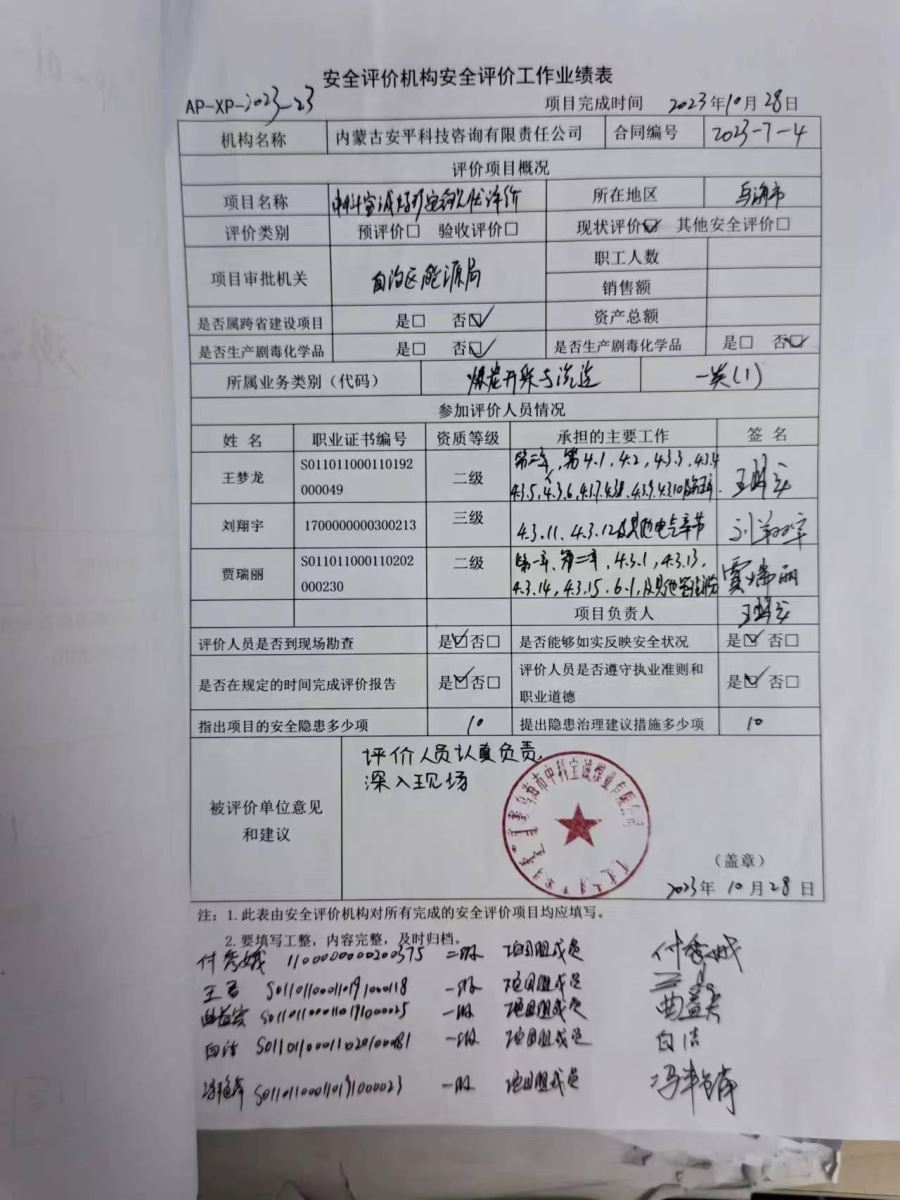 安全评价机构安全评价工作业绩表
AP-XP-2023-23 项目完成时间 2023年10月28日
机构名称 内蒙古安平科技咨询有限责任公司 合同编号 2023-7-4
评价项目概况
项目名称 中科宝诚煤矿 现状评价 所在地区 乌海市
评价类别 预评价□ 验收评价□ 现状评价☑ 其他安全评价□
项目审批机关 自治区能源局 职工人数
销售额
资产总额
是否属跨省建设项目 是□ 否☑
是否生产剧毒化学品 是□ 否☑ 是否生产剧毒化学品 是□ 否☑
所属业务类别（代码） 煤炭开采与洗选 一类(1)
参加评价人员情况
姓 名 职业证书编号 资质等级 承担的主要工作 签 名
王梦龙 S011011000110192000049 二级 第三章,第4.1,4.2,4.3.3,4.3.4
4.3.5,4.3.6,4.3.7,4.3.8,4.3.9,4.3.10及第五章.
刘翔宇 1700000000300213 三级 4.3.11、4.3.12及其他电气章节 刘翔宇
贾瑞丽 S011011000110202000230 二级 第一章、第二章,4.3.1,4.3.13,
4.3.14,4.3.15.6.1,及其他 贾瑞丽
项目负责人
评价人员是否到现场勘查 是☑否□ 是否能够如实反映安全状况 是☑ 否□
是否在规定的时间完成评价报告 是☑否□ 评价人员是否遵守执业准则和
职业道德 是☑ 否□
指出项目的安全隐患多少项 10 提出隐患治理建议措施多少项 10
被评价单位意见
和建议
评价人员认真负责,
深入现场
乌海市中科宝诚煤业有限公司
（盖章）
2023年 10月28日
注：1.此表由安全评价机构对所有完成的安全评价项目均应填写。
2.要填写工整，内容完整，及时归档。
付秀娥 1100000000200375 二级 项目组成员 付秀娥
王 S011011000110191000118 一级 项目组成员
曲益 S011011000110191000025 一级 项目组成员 曲益
白洁 S011011000110201000081 一级 项目组成员 白洁
冯 S011011000110191000023 一级 项目组成员 冯